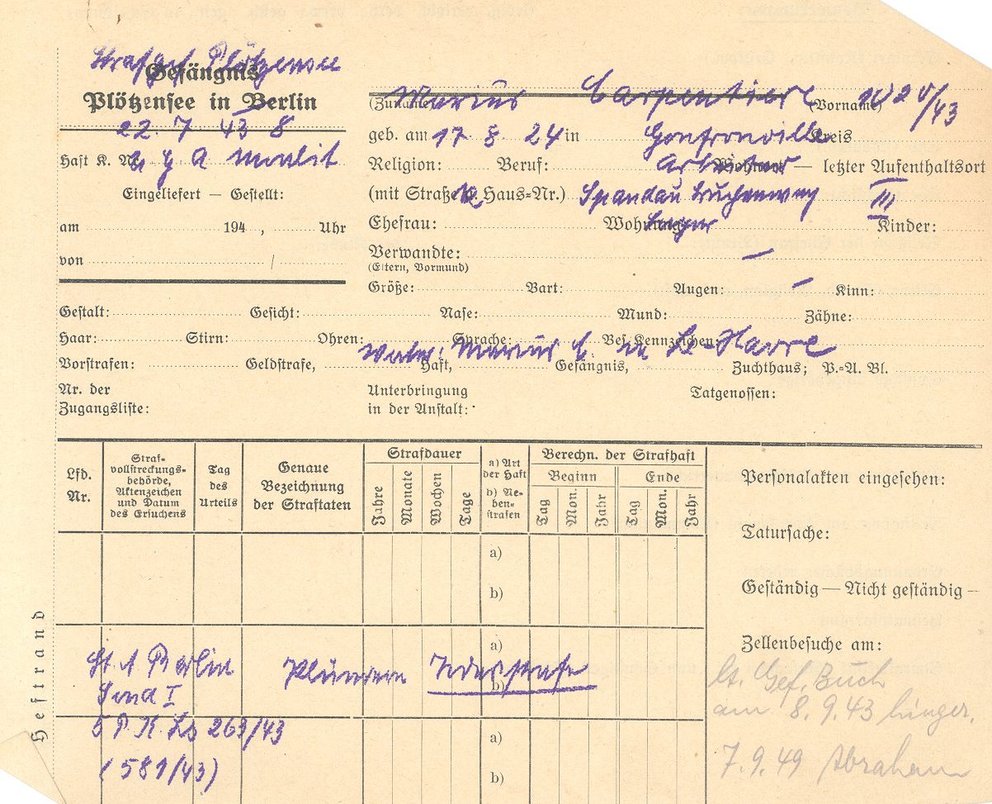 Strafgef Plötzensee
Gefängnis
Plötzensee in Berlin
22. 7 43 8
Haft K. Nr.
Eingeliefert – Gestellt:
am 194 , Uhr
von
Marius Carpentiere
(Zuname) (Vorname)
geb. am 17 8 24 in Gonfronville Kreis
Religion: Beruf: Arbeiter Wohnort — letzter Aufenthaltsort
(mit Straße u. Haus-Nr.) Spandau III
Ehefrau: Wohnung: Lager Kinder:
Verwandte: —
(Eltern, Vormund)
Größe: Bart: Augen: – Kinn:
Gestalt: Gesicht: Nase: Mund: Zähne:
Haar: Stirn: Ohren: Sprache: Bes. Kennzeichen:
Vater: Marius C. in Le-Havre
Vorstrafen: Geldstrafe, Haft, Gefängnis, Zuchthaus; P.-A. Bl.
Nr. der Zugangsliste:
Unterbringung in der Anstalt:
Tatgenossen:
Lfd. Nr.
Straf-
vollstreckungs-
behörde,
Aktenzeichen
und Datum
des Ersuchens
Tag
des
Urteils
Genaue
Bezeichnung
der Straftaten
Strafdauer
Jahre Monate Wochen Tage
a) Art
der Haft
b) Ne-
ben-
strafen
Berechn. der Strafhaft
Beginn Ende
Tag Mon. Jahr Tag Mon. Jahr
Personalakten eingesehen:
Tatursache:
Geständig — Nicht geständig –
Zellenbesuche am:
a)
b)
a)
b)
a)
b)
St. A Berlin
5 P. K Ls 263/43
(581/43)
Plündern Todesstrafe
lt. Gef. Buch
am 8.9.43 hinger.
7.9.49 Abraham
Heftrand